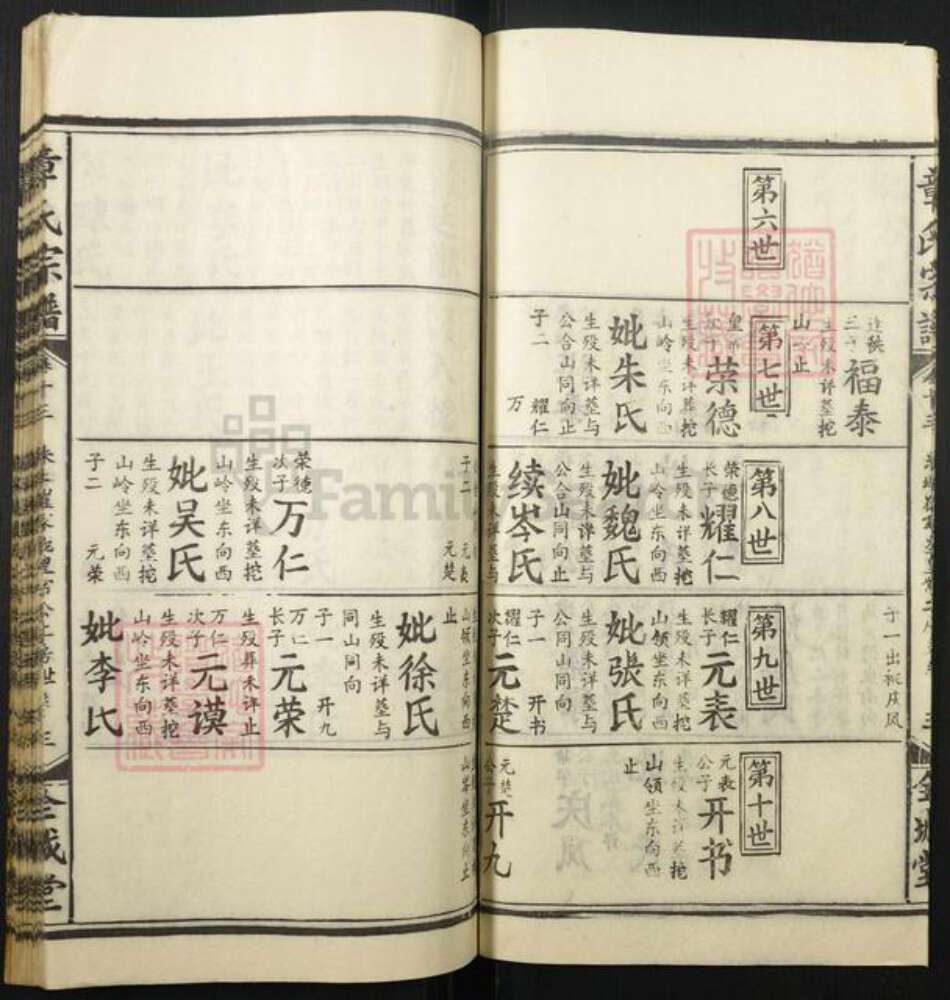 章氏宗譜
第六世
福泰
生殁未详墓挖
山 止
第七世
次子
荣德
生殁未详墓挖
山岭坐东向西
妣朱氏
生殁未详墓与
公合山同向止
子二 耀仁
万
第八世
荣德
长子
耀仁
生殁未详墓挖
山岭坐东向西
妣魏氏
生殁未详墓与
公合山同向止
续岑氏
生殁未详墓与
子二 元表
元楚
荣德
次子
万仁
生殁未详墓挖
山岭坐东向西
妣吴氏
生殁未详墓挖
山岭坐东向西
子二 元荣
子一出祀庆凤
第九世
耀仁
长子
元表
生殁未详墓挖
山领坐东向西
妣张氏
生殁未详墓与
公同山同向
子一 开书
耀仁
次子
元楚
山领坐东向西
止
妣徐氏
生殁未详墓与
同山同向
子一 开九
万仁
长子
元荣
生殁葬未详止
万仁
次子
元谟
生殁未详墓挖
山岭坐东向西
妣李氏
第十世
元表
公子
开书
生殁未详墓挖
山领坐东向西
止
元楚
公子
开九
章氏宗譜
卷十三
三
全城堂